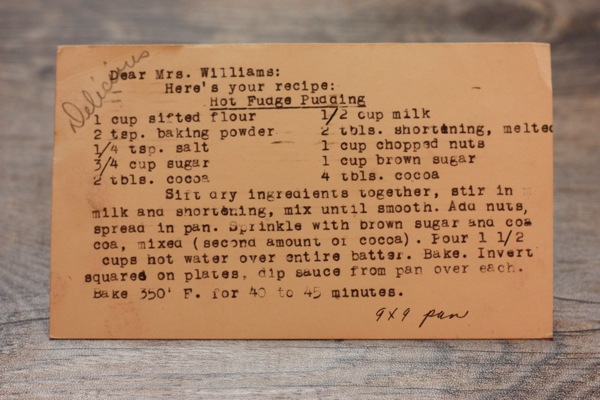 Delicious
Dear Mrs. Williams:
Here's your recipe:
Hot Fudge Pudding
1 cup sifted flour 1/2 cup milk
2 tsp. baking powder 2 tbls. shortening, melted
1/4 tsp. salt 1 cup chopped nuts
3/4 cup sugar 1 cup brown sugar
2 tbls. cocoa 4 tbls. cocoa
Sift dry ingredients together, stir in
milk and shortening, mix until smooth. Add nuts,
spread in pan. Sprinkle with brown sugar and coa
coa, mixed (second amount of cocoa). Pour 1 1/2
cups hot water over entire batter. Bake. Invert
squared on plates, dip sauce from pan over each.
Bake 350' F. for 40 to 45 minutes.
9x9 pan